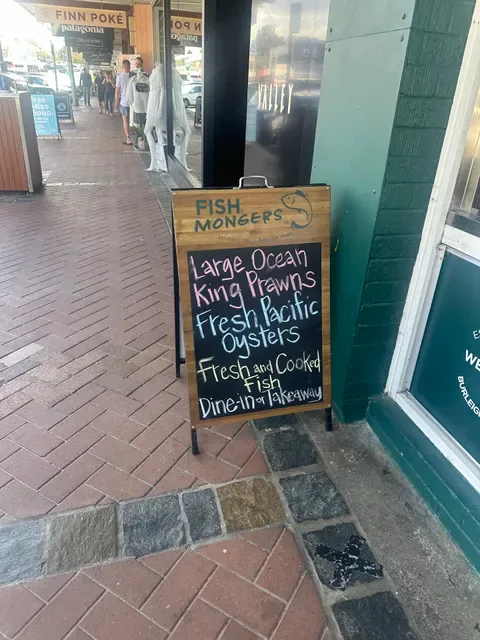 FINN POKÉ
patagonia
Free
Miso
Soup
FISH
MONGERS
Large Ocean
King Prawns
Fresh Pacific
Oysters
Fresh and Cooked
Fish
Dine-in or Takeaway
WE